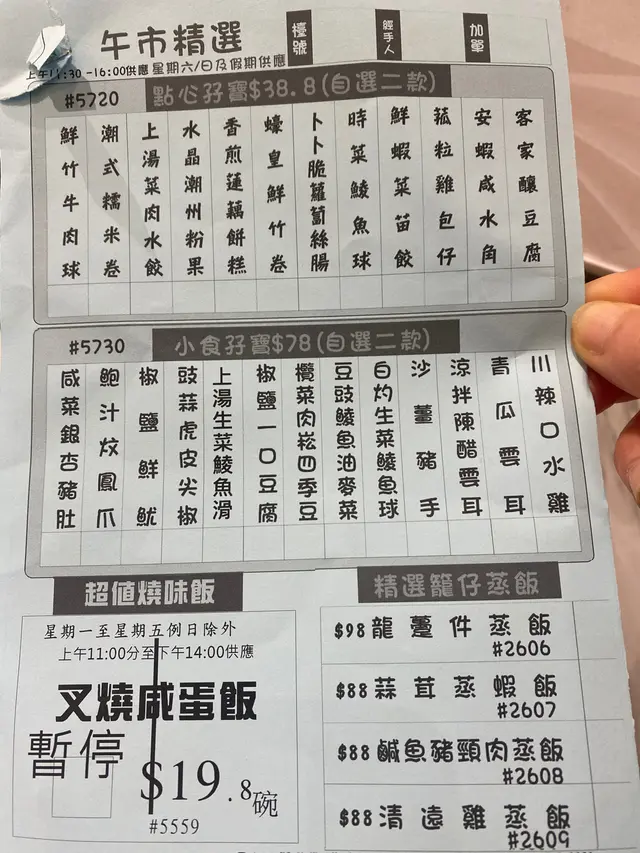 午市精選
檯號
經手人
加單
上午11:30-16:00供應 星期六/日及假期供應
#5720
點心孖寶$38.8(自選二款)
客家釀豆腐
安蝦咸水角
菰粒雞包仔
鮮蝦菜苗餃
時菜鯪魚球
卜卜脆蘿蔔絲腸
蠔皇鮮竹卷
香煎蓮藕餅糕
水晶潮州粉果
上湯菜肉水餃
潮式糯米卷
鮮竹牛肉球
#5730
小食孖寶$78(自選二款)
川辣口水雞
青瓜雲耳
涼拌陳醋雲耳
沙薑豬手
白灼生菜鯪魚球
豆豉鯪魚油麥菜
欖菜肉崧四季豆
椒鹽一口豆腐
上湯生菜鯪魚滑
豉蒜虎皮尖椒
椒鹽鮮魷
鮑汁炆鳳爪
咸菜銀杏豬肚
超值燒味飯
星期一至星期五例日除外
上午11:00分至下午14:00供應
叉燒咸蛋飯
暫停
$19.8碗
#5559
精選籠仔蒸飯
$98龍躉件蒸飯
#2606
$88蒜茸蒸蝦飯
#2607
$88鹹魚豬頸肉蒸飯
#2608
$88清遠雞蒸飯
#2609